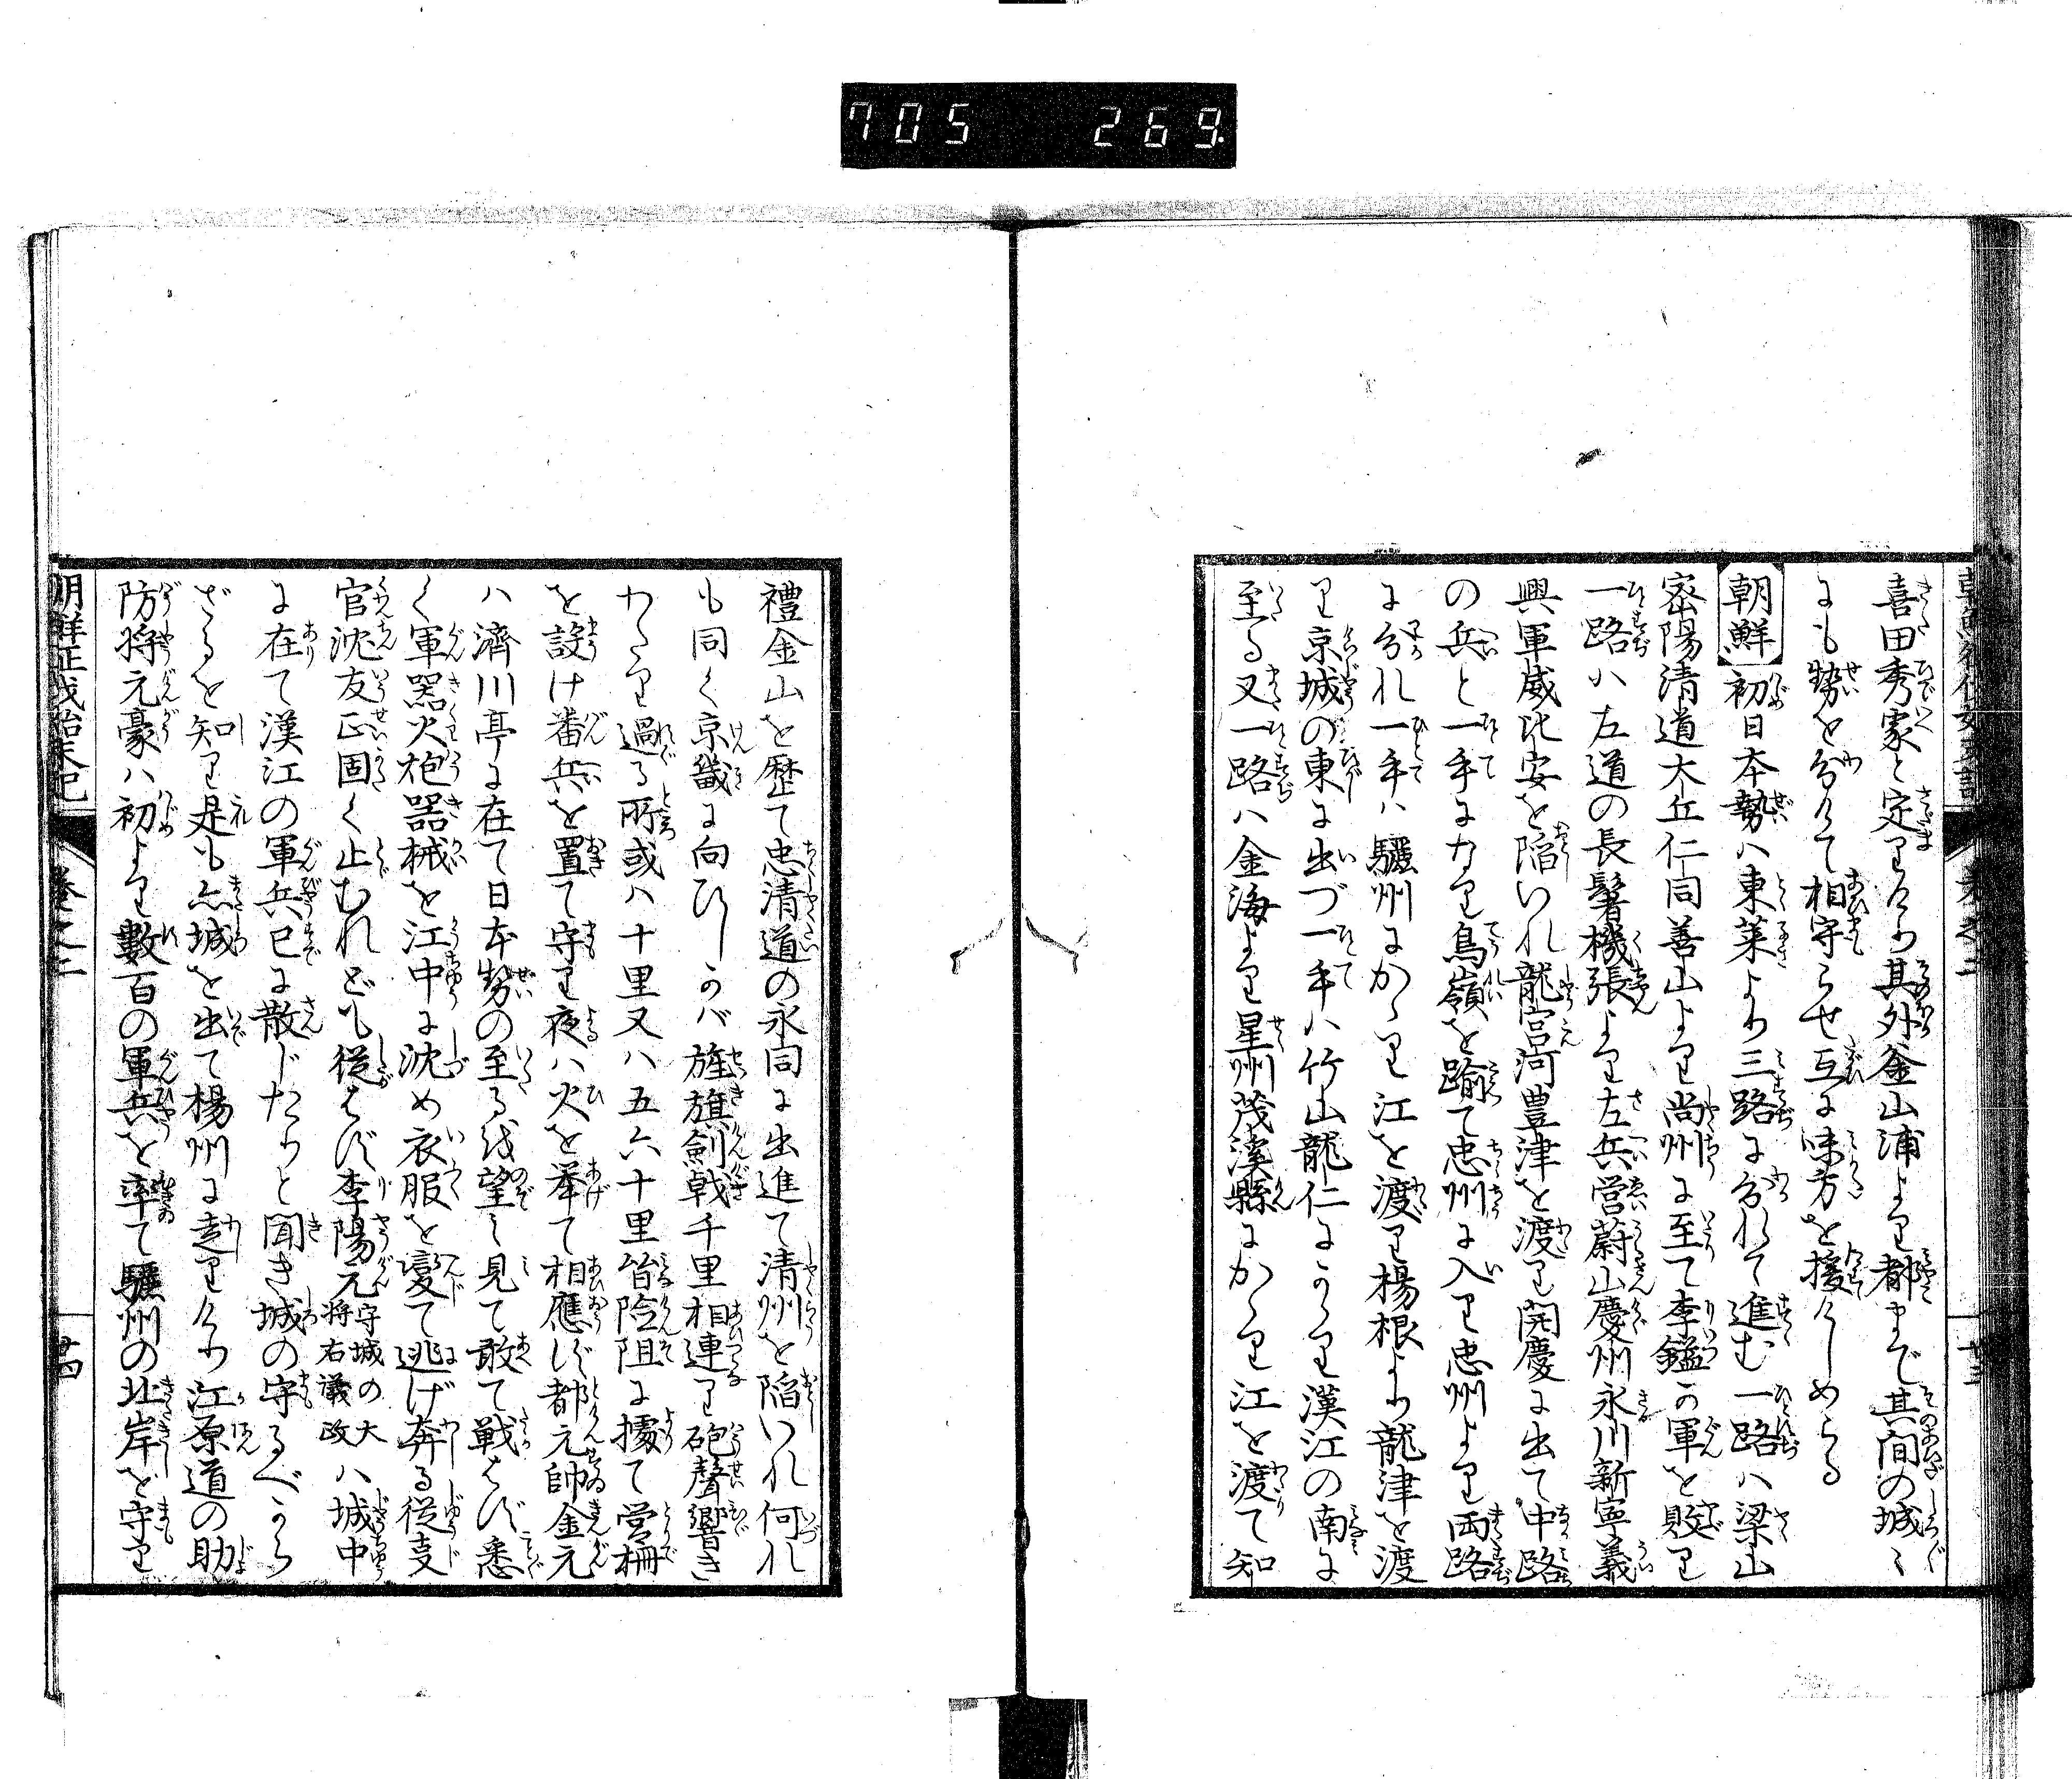 705 269
喜田秀家と定りけり其外釜山浦より都まで其間の城〻
にも勢を分けて相守らせ互に味方を援けしめらる
朝鮮 初日本勢ハ東莱より三路に分れて進む一路ハ梁山
密陽清道大丘仁同善山より尚州に至て李鎰の軍を敗り
一路ハ左道の長鬐機張より左兵営蔚山慶州永川新寧義
興軍威比安を陥いれ龍宮河豊津を渡り聞慶に出て中路
の兵と一手になり鳥嶺を踰て忠州に入り忠州より両路
に分れ一手ハ驪州にかゝり江を渡り楊根より龍津を渡
り京城の東に出づ一手ハ竹山龍仁にかゝり漢江の南に
至る又一路ハ金海より星州茂溪縣にかゝり江を渡て知
禮金山を歴て忠清道の永同に出進て清州を陥いれ何れ
も同く京畿に向ひしかバ旌旗劍戟千里相連り砲聲響き
わたり過る所或ハ十里又ハ五六十里皆險阻に據て営柵
を設け番兵を置て守り夜ハ火を挙て相應ず都元帥金元
ハ濟川亭に在て日本勢の至るを望み見て敢て戦はず悉
く軍器火炮器械を江中に沈め衣服を變て逃げ奔る従事
官沈友正固く止むれども従はず李陽元 守城の大将右議政 ハ城中
に在て漢江の軍兵已に散じたりと聞き城の守るべから
ざるを知り是も亦城を出て楊州に走りけり江原道の助
防将元豪ハ初より數百の軍兵を率て驪州の北岸を守り
朝鮮征伐始末記 巻之二 廿四